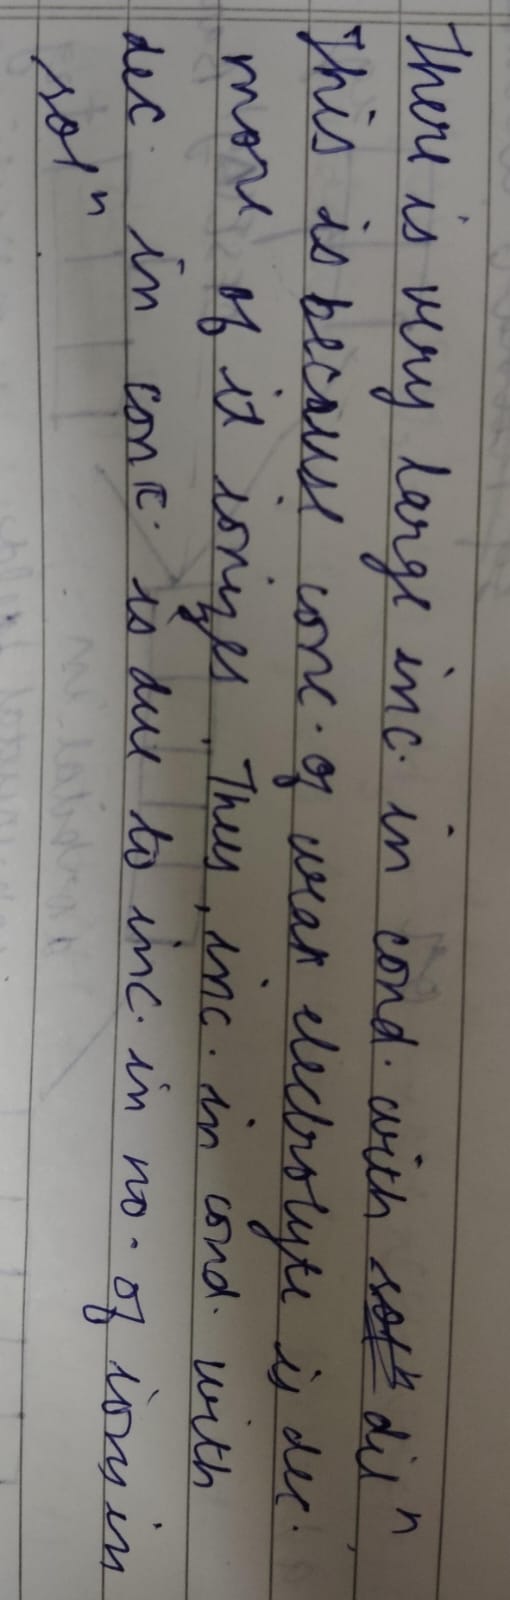 There is very large inc. in cond. with ~~solⁿ~~ dilⁿ
This is because conc. of weak electrolyte is dec.
more of it ionizes. Thus, inc. in cond. with
dec. in conc. is due to inc. in no. of ions in
solⁿ